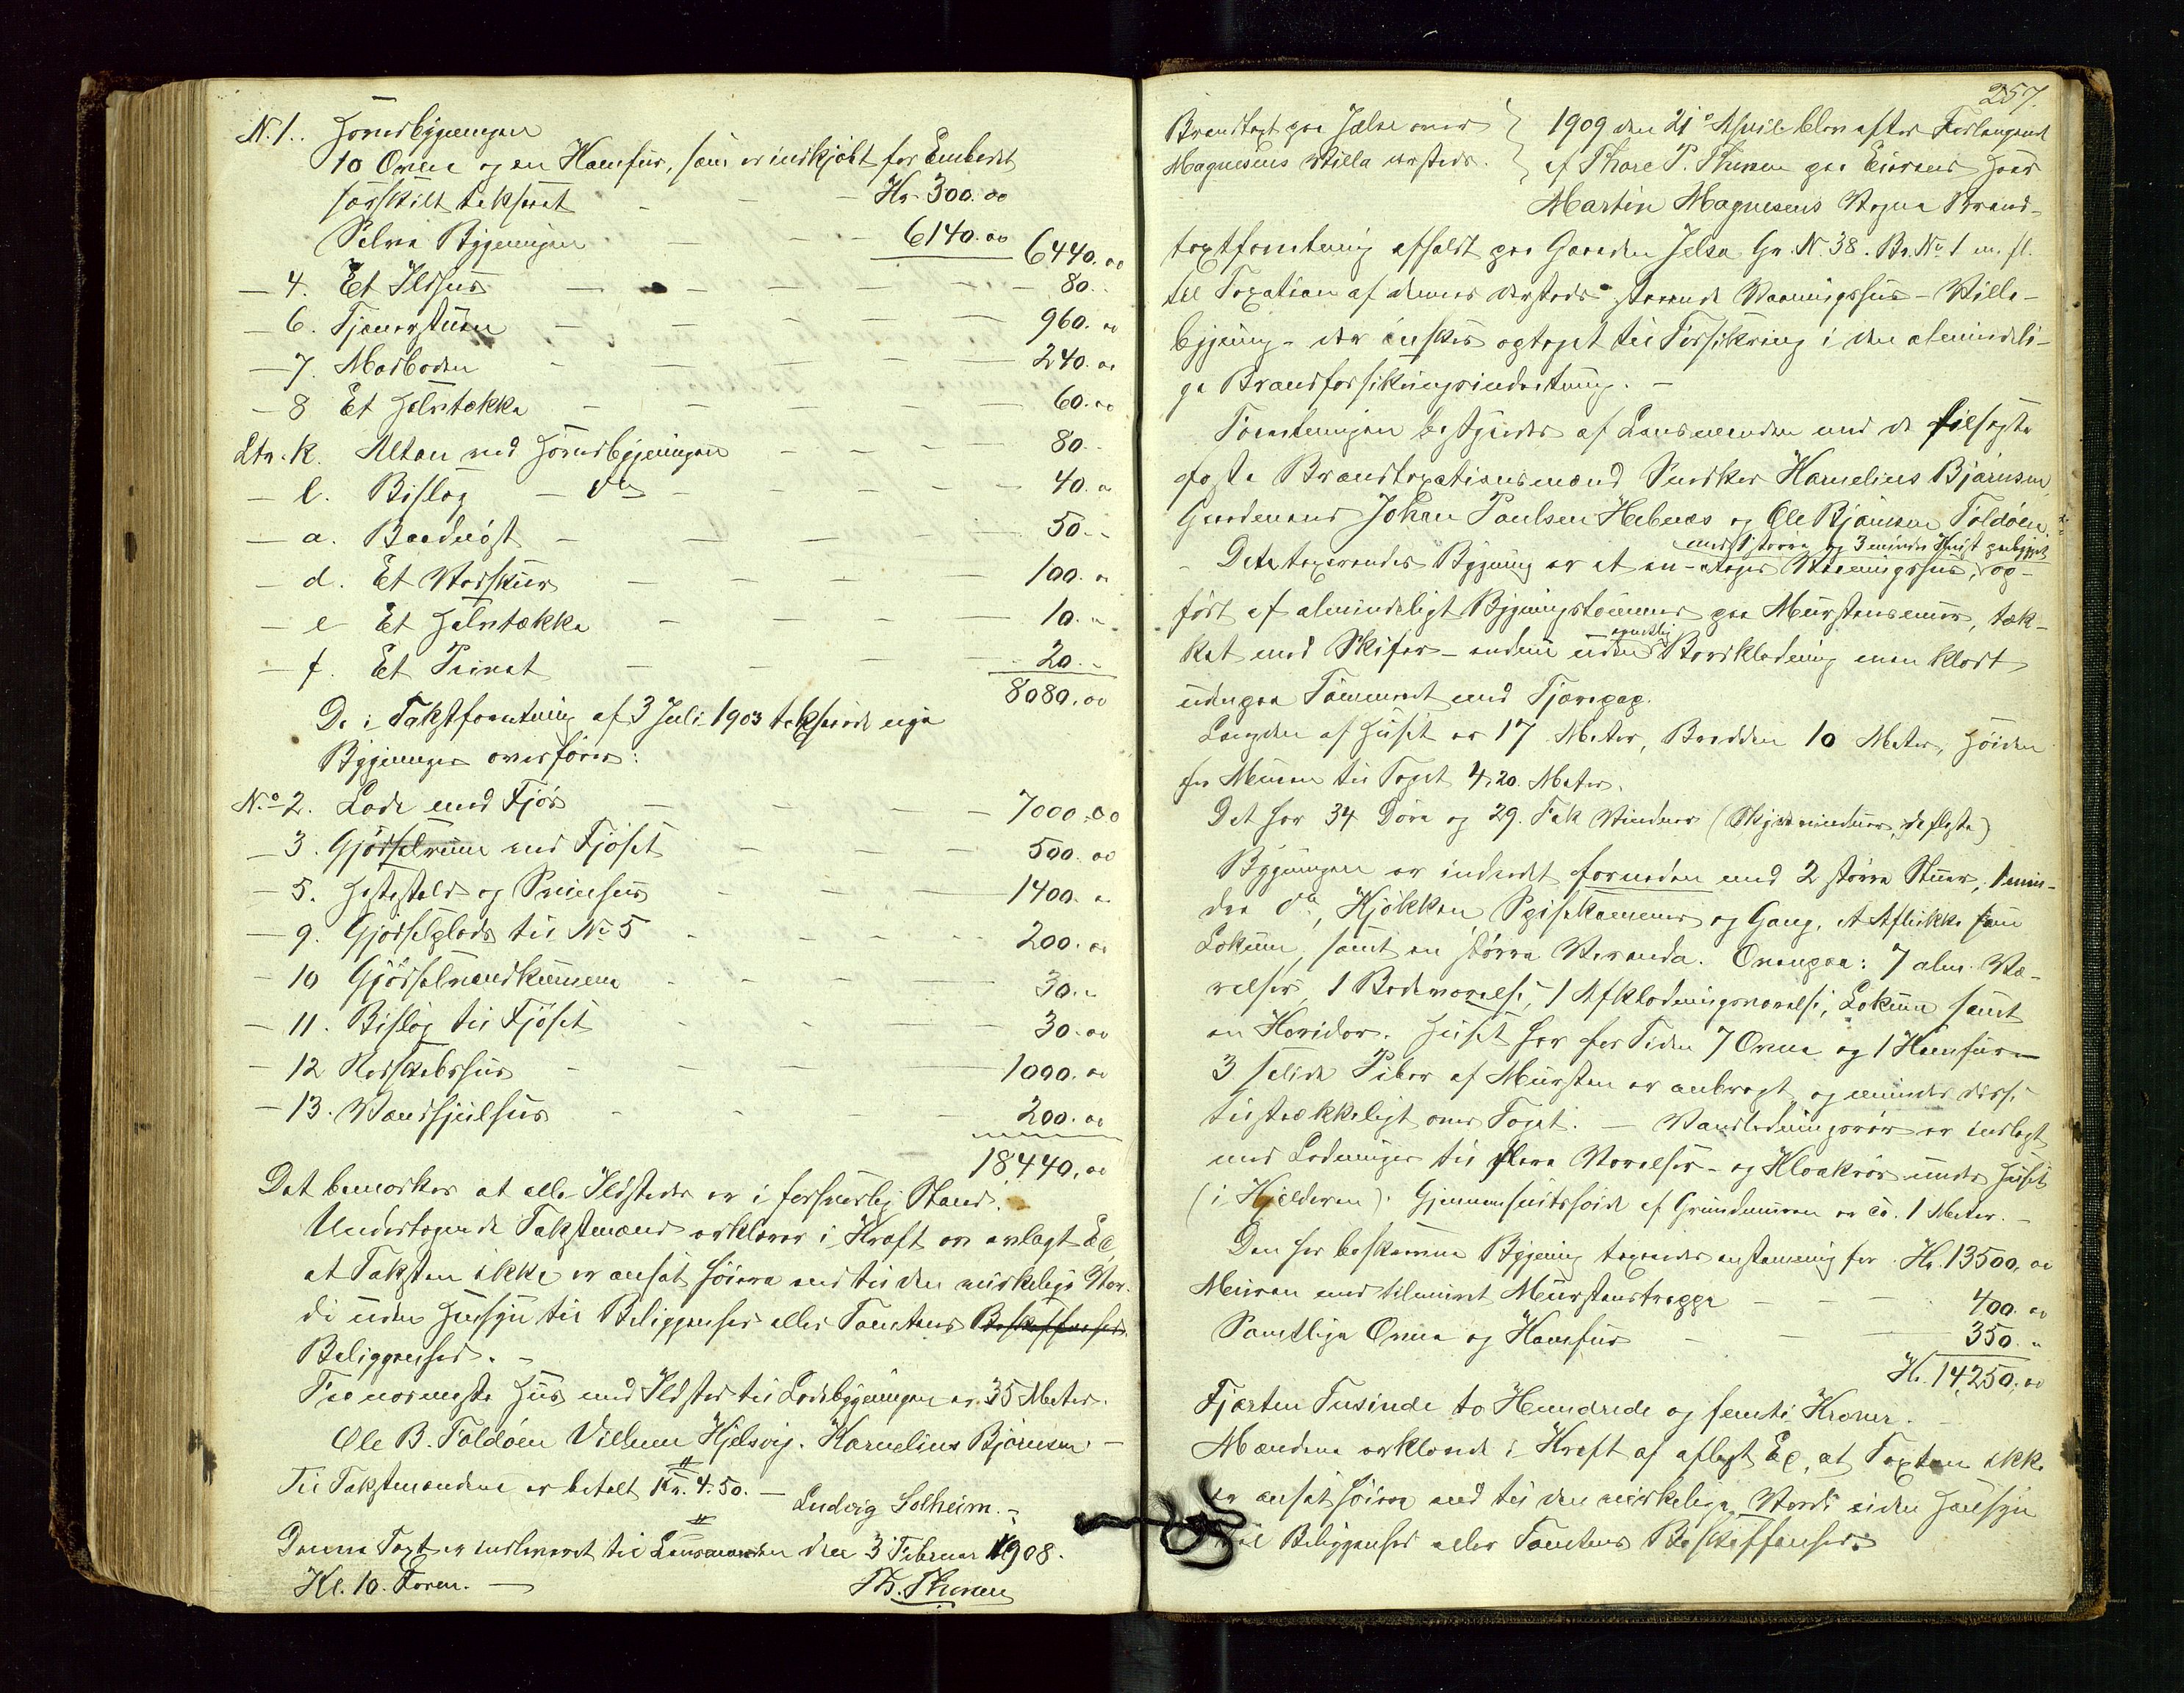 N. 1. Hovedbygningen
10 Ovne og en Komfur, som er indkjøbt for Embedet
særskilt takseret — — Kr. 300.00
Selve Bygningen — — — 6140.00 6440.00
— 4. Et Ildhus — — — — — — 80..
— 6. Tjenerstuen — — — — — 960.00
— 7. Madboden — — — — 240.00
— 8 Et Halvtække — — — — — 60.00
Ltr. k. Altan ved Hovedbygningen — — — 80..
— l. Bislag — do — — — — 40.00
— a. Baadnøst — — — — 50..
— d. Et Vedskur — — — — 100.00
— e Et Halvtække — — — — 10..
— f. Et Privat — — — — 20..
8080.00
De i Takstforretning af 3 Juli 1903 takserede nye
Bygninger overføres:
No 2. Lade med Fjøs — — — 7000.00
— 3. Gjødselrum ved Fjøset — — — 500.00
— 5. Hestestald og Svinehus — — — 1400..
— 9. Gjødselplads til No 5 — — — 200.00
— 10 Gjødselvandkummen — — — 30..
— 11. Bislag til Fjøset — — — 30.00
— 12 Redskabshus — — — — 1000.00
— 13. Vandhjulhus — — — 200.00
18,440,00
Det bemærkes at alle Ildsteder er i forsvarlig Stand.
Undertegnede Takstmænd erklærer i Kraft av avlagt Ed,
at Taksten ikke er ansat høiere end til den virkelige Vær-
di uden Hensyn til Beliggenhed eller Tomtens Beskaffenhed
Beliggenhed. —
Fra nærmeste Hus med Ildsted til Ladebygningen er 35 Meter.
Ole B. Foldøen Vilhelm Hjelsvig. Kornelius Bjørnsen —
Til Takstmændene er betalt Kr. 4.50. —
Ludvig Solheim. —
Denne Taxt er indleveret til Lensmanden den 3 Februar 1908.
Kl. 10. Form. —
Th. Thunem
257.
Brandtaxt paa Jælse over
Magnesens Villa versteds.
1909 den 21de April blev efter Forlangende
af Thore P. Thunem paa Eieren Hans
Martin Magnesens Vegne Brand-
taxtforretning afholdt paa Gaarden Jelsa Gr. N 38. Br. No 1 m. fl.
til Taxation af dennes dersteds staaende Vaaningshus – Villa-
bygning – der ønskes optaget til Forsikring i den almindeli-
ge Brandforsikringsindretning. —
Forretningen bestyredes af Lensmanden med de tilsagte
faste Brandtaxationsmænd Snedker Kornelius Bjørnsen,
Gaardmand Johan Paulsen Hebnes og Ole Bjørnsen Foldøen.
med 1 større og 3 mindre Kvist paabygget
– Dette taxerendes Bygning er et en-etages Vaaningshus, op-
ført af almindeligt Bygningstømmer paa Murstensmur, tæk-
egentlig
ket med Skifer – endnu uden Bordklædning men klædt
udenpaa Tømmeret med Tjærepap.
Længden af Huset er 17 Meter, Bredden 10 Meter, Høiden
fra Muren til Taget 4,20 Meter.
Det har 34 Døre og 29. Fak Vinduer (Skydevinduer, de fleste)
Bygningen er indredet forneden med 2 større Stuer, 1 min-
dre do, Kjøkken, Spisekammer og Gang, et Aflukke som
Lokum, samt en større Veranda. Ovenpaa: 7 alm. Væ-
relser, 1 Badeværelse, 1 Afklædningsværelse, Lokum samt
en Koridor. Huset har for Tiden 7 Ovne og 1 Komfur —
3 solide Piber af Mursten er anbragt og munder disse
tilstrækkeligt over Taget. — Vandledningsrør er indlagt
med Ledninger til flere Værelser – og Kloakrør under Huset
(i Kjelderen). Gjennemsnitshøide af Grundmuren er ca. 1 Meter. —
Den her beskrevne Bygning taxeredes enstemmig for Kr. 13500,00
Muren med tilmuret Murstenstrappe — — — 400.00
Samtlige Ovne og Komfur — — — 350..
Kr. 14,250,00
Fjorten Tusinde to Hundrede og femti Kroner. —
Mændene erklærede i Kraft af aflagt Ed, at Taxten ikke
er ansat høiere end til den virkelige Værdi uden Hensyn
til Beliggenhed eller Tomtens Beskaffenhed.